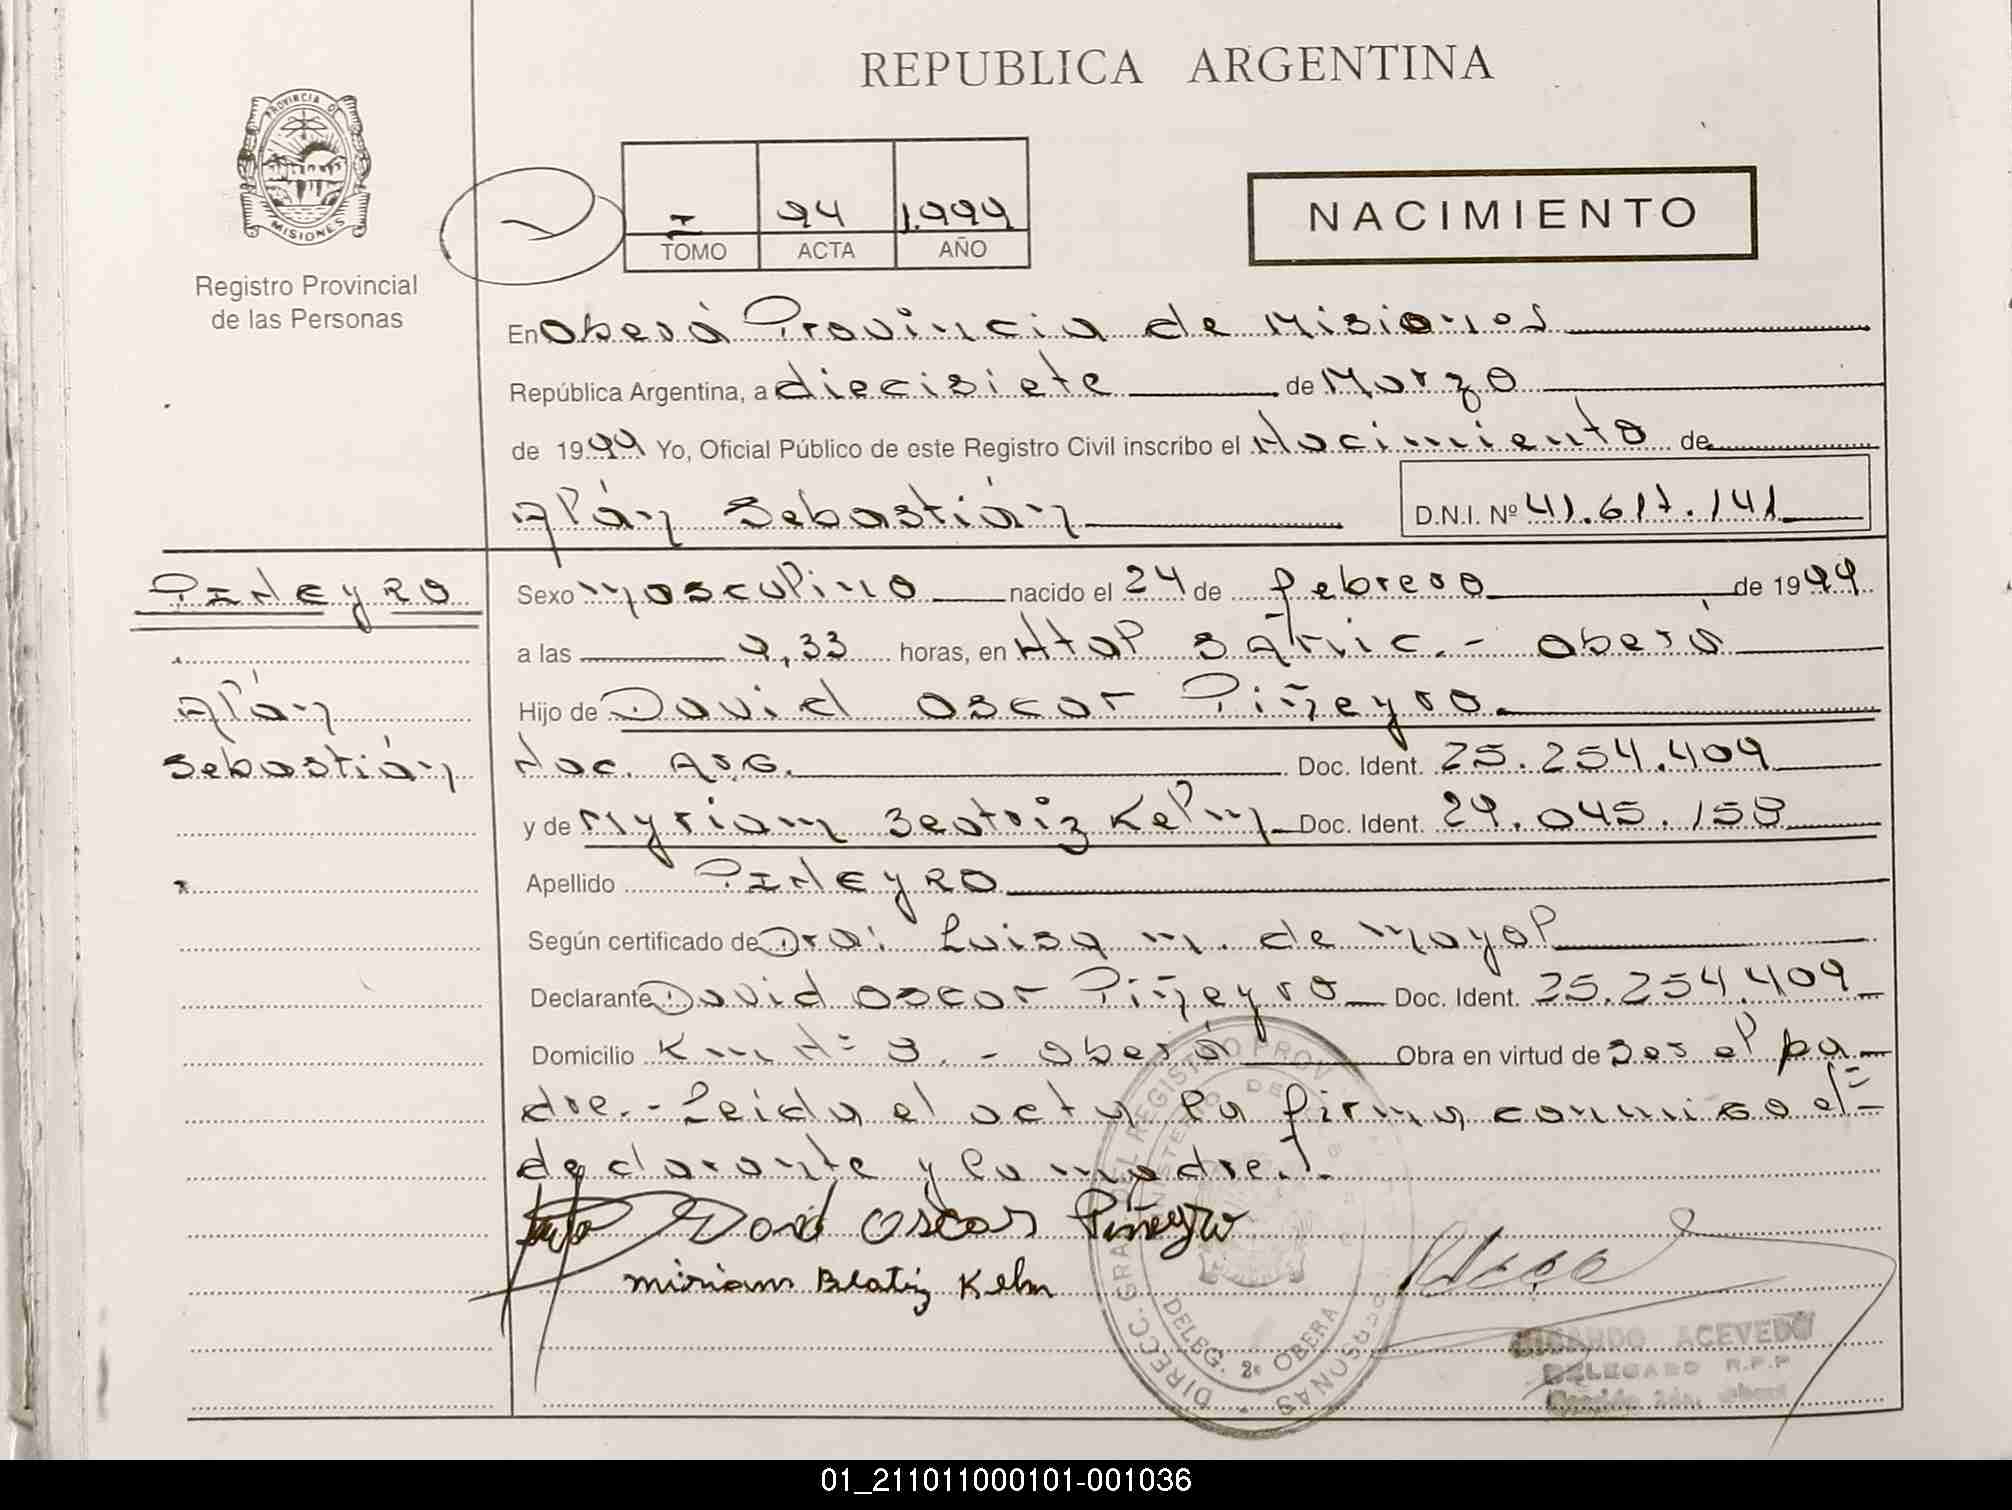 REPUBLICA ARGENTINA
PROVINCIA DE
MISIONES
Registro Provincial
de las Personas
I 94 1.999
TOMO ACTA AÑO
NACIMIENTO
En Oberá Provincia de Misiones
República Argentina, a diecisiete de Marzo
de 1999 Yo, Oficial Público de este Registro Civil inscribo el Nacimiento de
Alán Sebastián D.N.I. Nº 41.617.141
PIÑEYRO
Alán
Sebastián
Sexo Masculino nacido el 24 de febrero de 1999
a las 9,33 horas, en Htal Sámic.- Oberá
Hijo de David Oscar Piñeyro
Nac. Arg. Doc. Ident. 25.254.409
y de Myriam Beatriz Kelm Doc. Ident. 29.045.158
Apellido PIÑEYRO
Según certificado de Dra: Luisa M. de Mayol
Declarante David Oscar Piñeyro Doc. Ident. 25.254.409
Domicilio Km Nº 8.- Oberá Obra en virtud de ser el pa-
dre.- Leida el acta la firma conmigo el=
declarante y la madre.-
David Oscar Piñeyro
Miriam Beatriz Kelm
DIRECC. GRAL DEL REGISTRO PROV. PERSONAS
DELEG. 2º OBERA
ACEVEDO
DELEGADO R.P.P
01_211011000101-001036